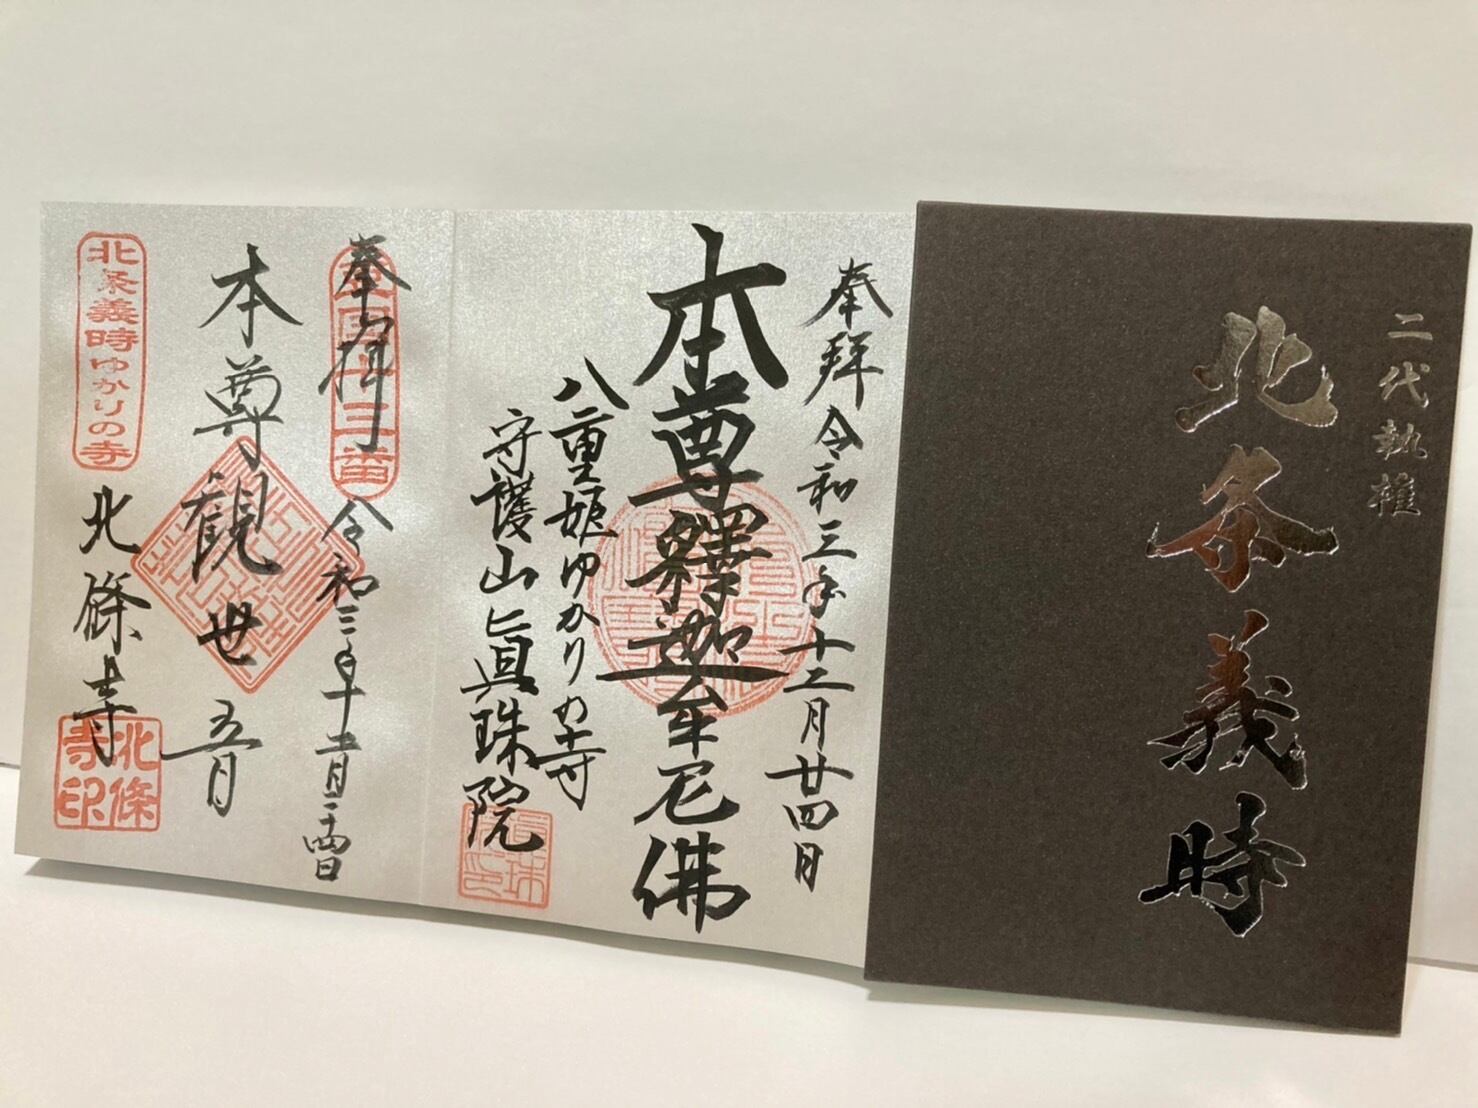 二代執権
北条義時
奉拝 令和三年十二月廿四日
本尊釋迦牟尼佛
八重姫ゆかりの寺
守護山眞珠院
奉拝 令和三年十二月二十四日
本尊観世音
北條寺
北条義時ゆかりの寺
北條寺印